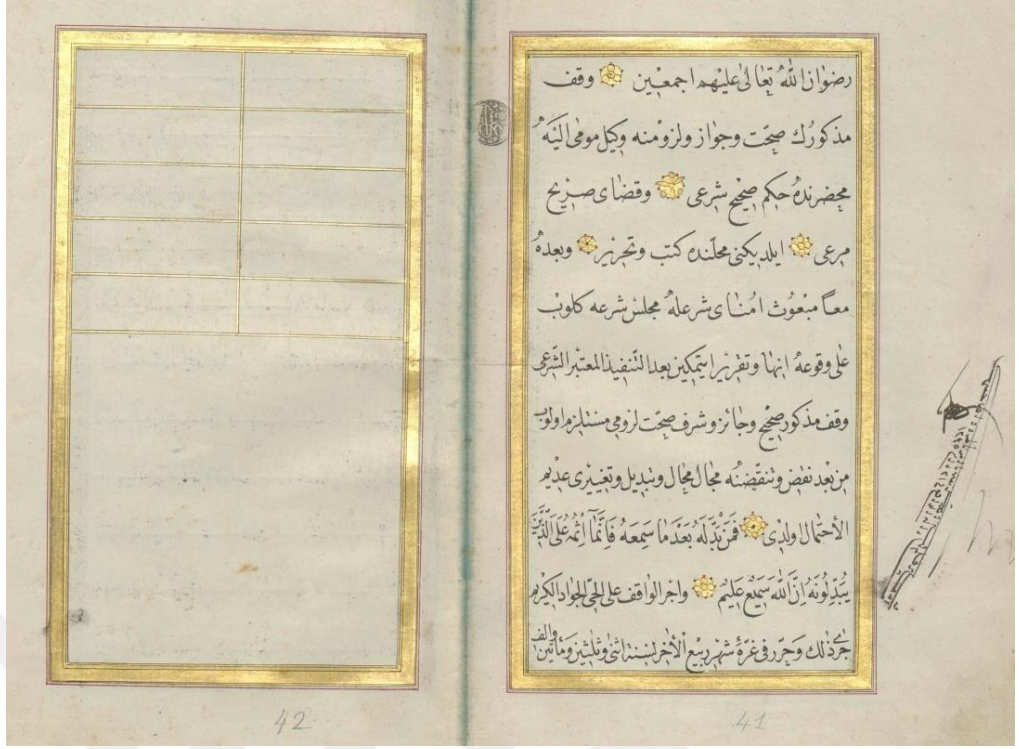 رضوان الله تعالى عليهم اجمعين وقف
مذكورك صحت وجواز ولزومنه وكيل مومى اليه
محضرنده حكم صحيح شرعى وقضاى صريح
مرعى ايلديكنى محلنده كتب وتحرير وبعده
معاً مبعوث امناى شرعله مجلس شرعه كلوب
على وقوعه انها وتقرير ايتمكين بعد التنفيذ المعتبر الشرعى
وقف مذكور صحيح وجائز وشرف صحت لزومى مستلزم اولوب
من بعد نقض وتنقيضنه مجال محال وتبديل وتغييرى عديم
الاحتمال ولدى فَمَنْ بَدَّلَهُ بَعْدَ مَا سَمِعَهُ فَاِنَّمَا اِثْمُهُ عَلَى الَّذِينَ
يُبَدِّلُونَهُ اِنَّ اللهَ سَمِيعٌ عَلِيمٌ واجر الواقف على الحى الجواد الكريم
جرى ذلك وحرر فى غرة شهر ربيع الآخر لسنة اثنى وثلثين ومأتين والف
41
42